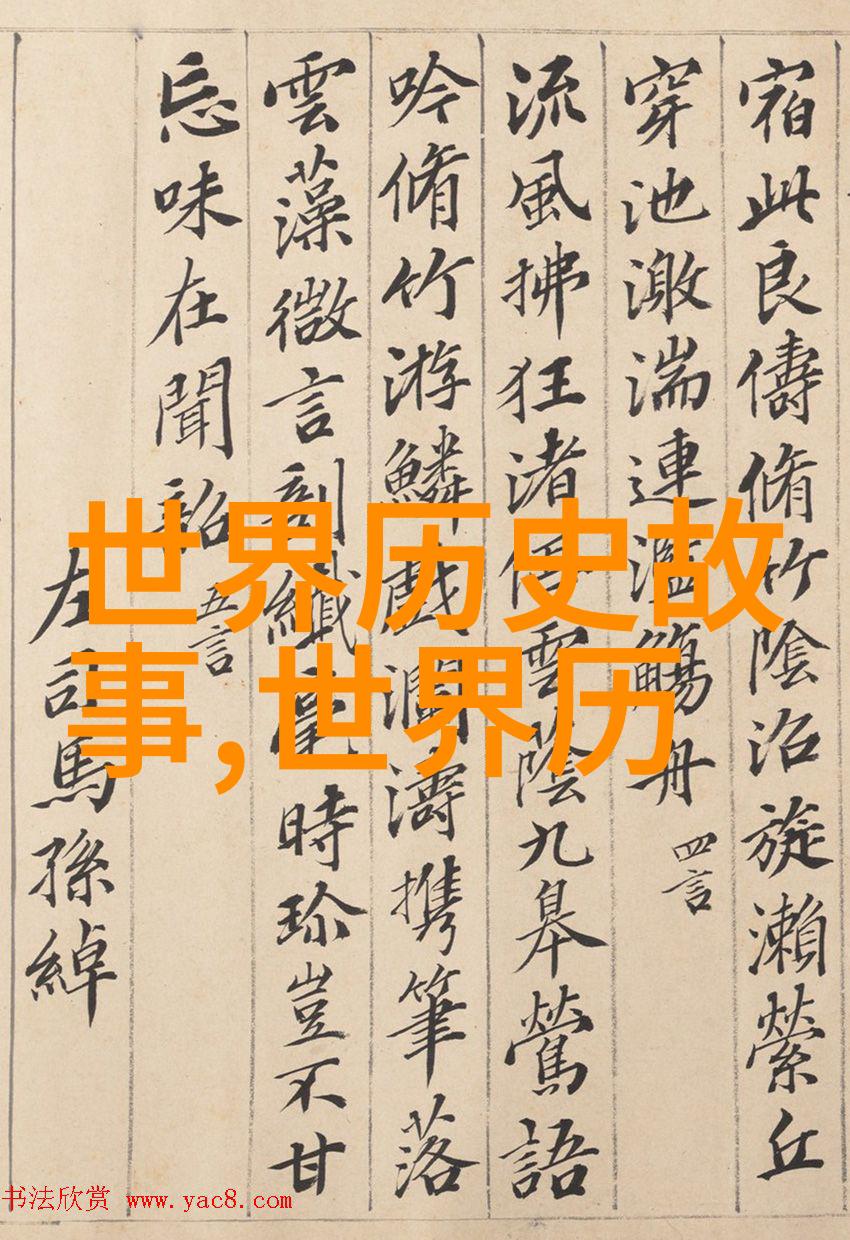 宿此良儔脩竹陰沼旋瀨縈丘
穿池激湍連濫觴舟 四言
流風拂狂渚停雲蔭九皋鶯語
吟脩竹游鱗戲瀾濤携筆落
雲藻微言剖纖毫時珍豈不甘
忘味在聞韶 五言
左司馬孫綽
世界历史故
事,世界历
书法欣赏 www.yac8.com